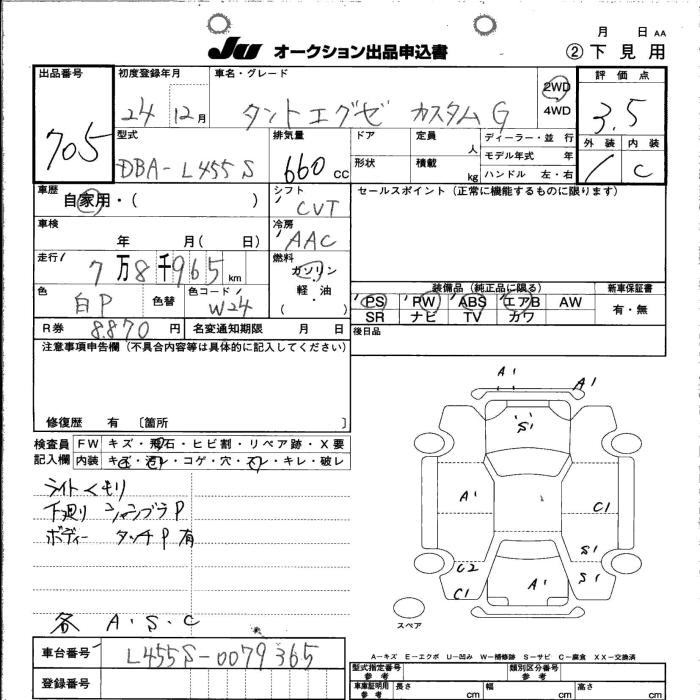 月 日 AA
JU オークション出品申込書 ②下見用
出品番号 初度登録年月 車名・グレード 2WD 4WD 評価点
705 24年 12月 タントエグゼ カスタムG 3.5
型式 排気量 ドア 定員 人 ディーラー・並行 外装 内装
DBA-L455S 660cc 形状 積載 kg モデル年式 年 C
ハンドル 左・右
車歴 自家用・( ) シフト CVT セールスポイント(正常に機能するものに限ります)
車検 年 月( 日) 冷房 AAC
走行 7万8千965km 燃料 ガソリン・軽油 ( )
色 白P 色替 色コード W24
装備品(純正品に限る) 新車保証書
PS PW ABS エアB AW 有・無
SR ナビ TV カワ
R券 8870円 名変通知期限 月 日 後日品
注意事項申告欄(不具合内容等は具体的に記入してください)
修復歴 有 〔箇所 〕
検査員記入欄 FW キズ・飛石・ヒビ割・リペア跡・X要
内装 キズ・汚レ・コゲ・穴・スレ・キレ・破レ
ライトくもり
下廻り シャシブラP
ボディー タッチP有
各 A・S・C
A1
A1
S1
A1
C1
S1
C2 S1
C1 A1
スペア
A-キズ E-エクボ U-凹み W-補修跡 S-サビ C-腐食 XX-交換済
車台番号 L455S-0079365
登録番号
型式指定番号 参考 類別区分番号 参考
車庫証明用 参考 長さ cm 幅 cm 高さ cm